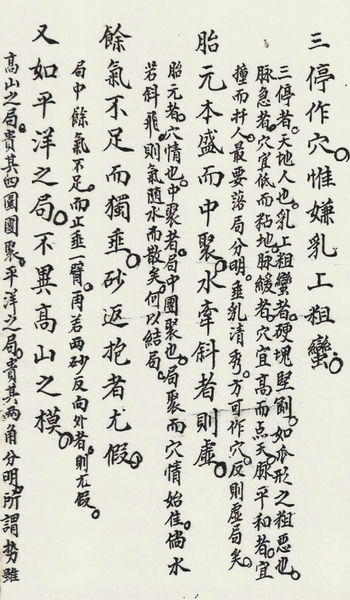 三停作穴。惟嫌乳上粗蠻。
三停者。天地人也。乳上粗蠻者。硬塊堅劊。如瓜形之粗惡也。
脉急者。穴宜低而粘地。脉緩者。穴宜高而点天。脉平和者。宜
撞而扦人。最要諮局分明。垂乳清秀。方可作穴。反則虛局矣。
胎元本盛而中聚。水牽斜者則虛。
胎元者。穴情也。中聚者。局中團聚也。局聚而穴情始佳。倘水
若斜飛。則氣随水而散矣。何以結局。
餘氣不足而獨垂。砂返抱者尤假。
局中餘氣不足。而止垂一臂。再若两砂反向外者。則尤假。
又如平洋之局。不異高山之模。
高山之局。貴其四圍團聚。平洋之局。貴其两角分明。所謂勢雖